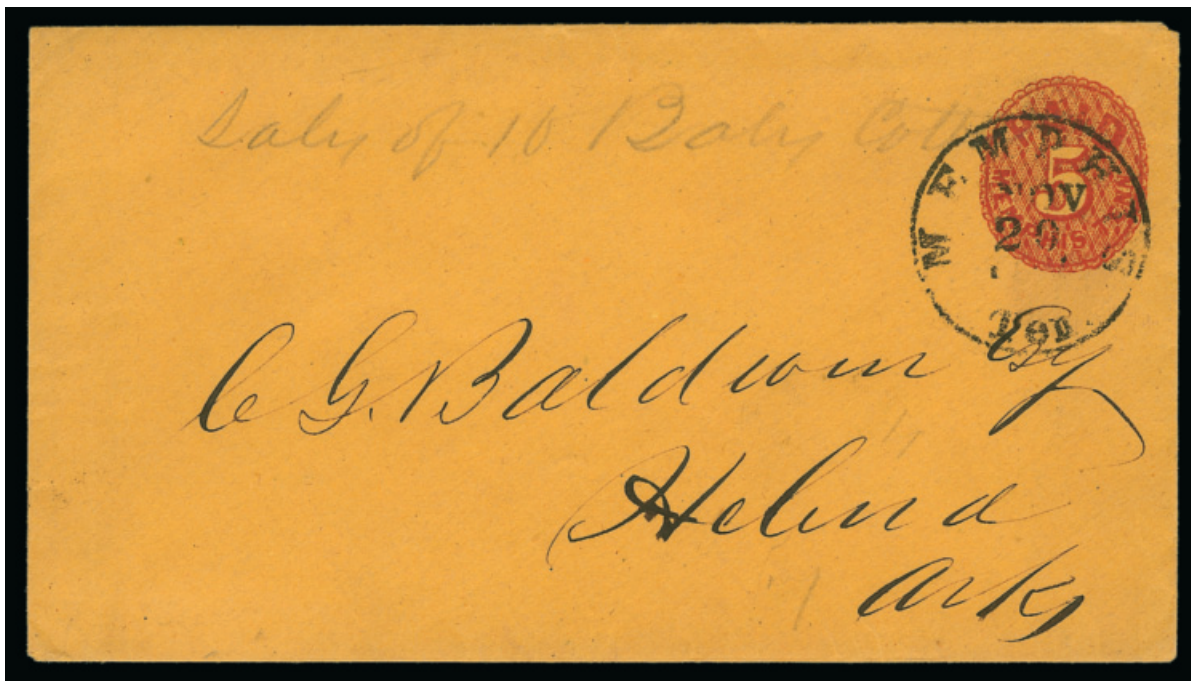 Sales of 10 Bales Cott
PAID
5
MEMPHIS TENN.
MEMPHIS
NOV
20
Ten.
C G. Baldwin Esq
Helena
Arks